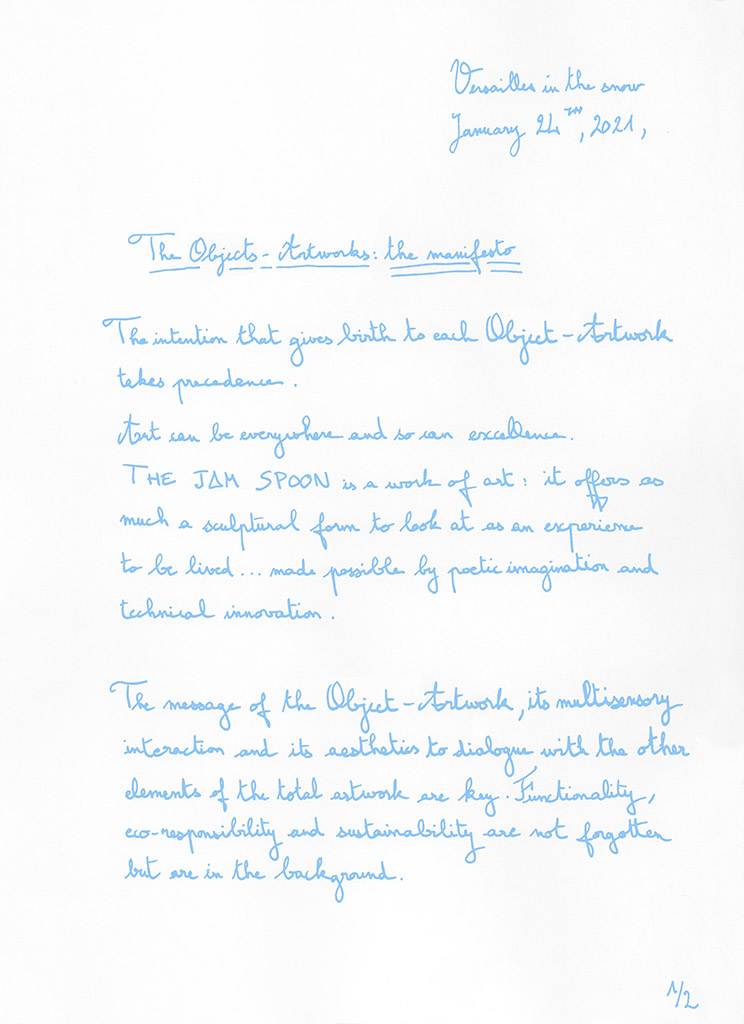 Versailles in the snow
January 24TH, 2021,
The Objects-Artworks: the manifesto
The intention that gives birth to each Object-Artwork
takes precedence.
Art can be everywhere and so can excellence.
THE JAM SPOON is a work of art: it offers as
much a sculptural form to look at as an experience
to be lived... made possible by poetic imagination and
technical innovation.
The message of the Object-Artwork, its multisensory
interaction and its aesthetics to dialogue with the other
elements of the total artwork are key. Functionality,
eco-responsibility and sustainability are not forgotten
but are in the background.
1/2